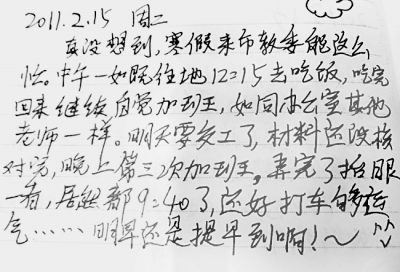 2011.2.15 周二
真没想到,寒假来市教委能这么
忙。中午一如既往地12:15去吃饭,吃完
回来继续自觉加班,如同办公室其他
老师一样。明天要交工了,材料还没核
对完,晚上第三次加班,弄完了抬眼
一看,居然都9:40了,还好打车的够运
气……明早还是提早到啊!~^^